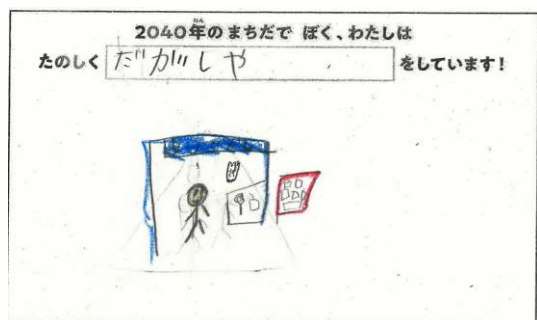 2040年のまちだで ぼく、わたしは
たのしく だがしや をしています!